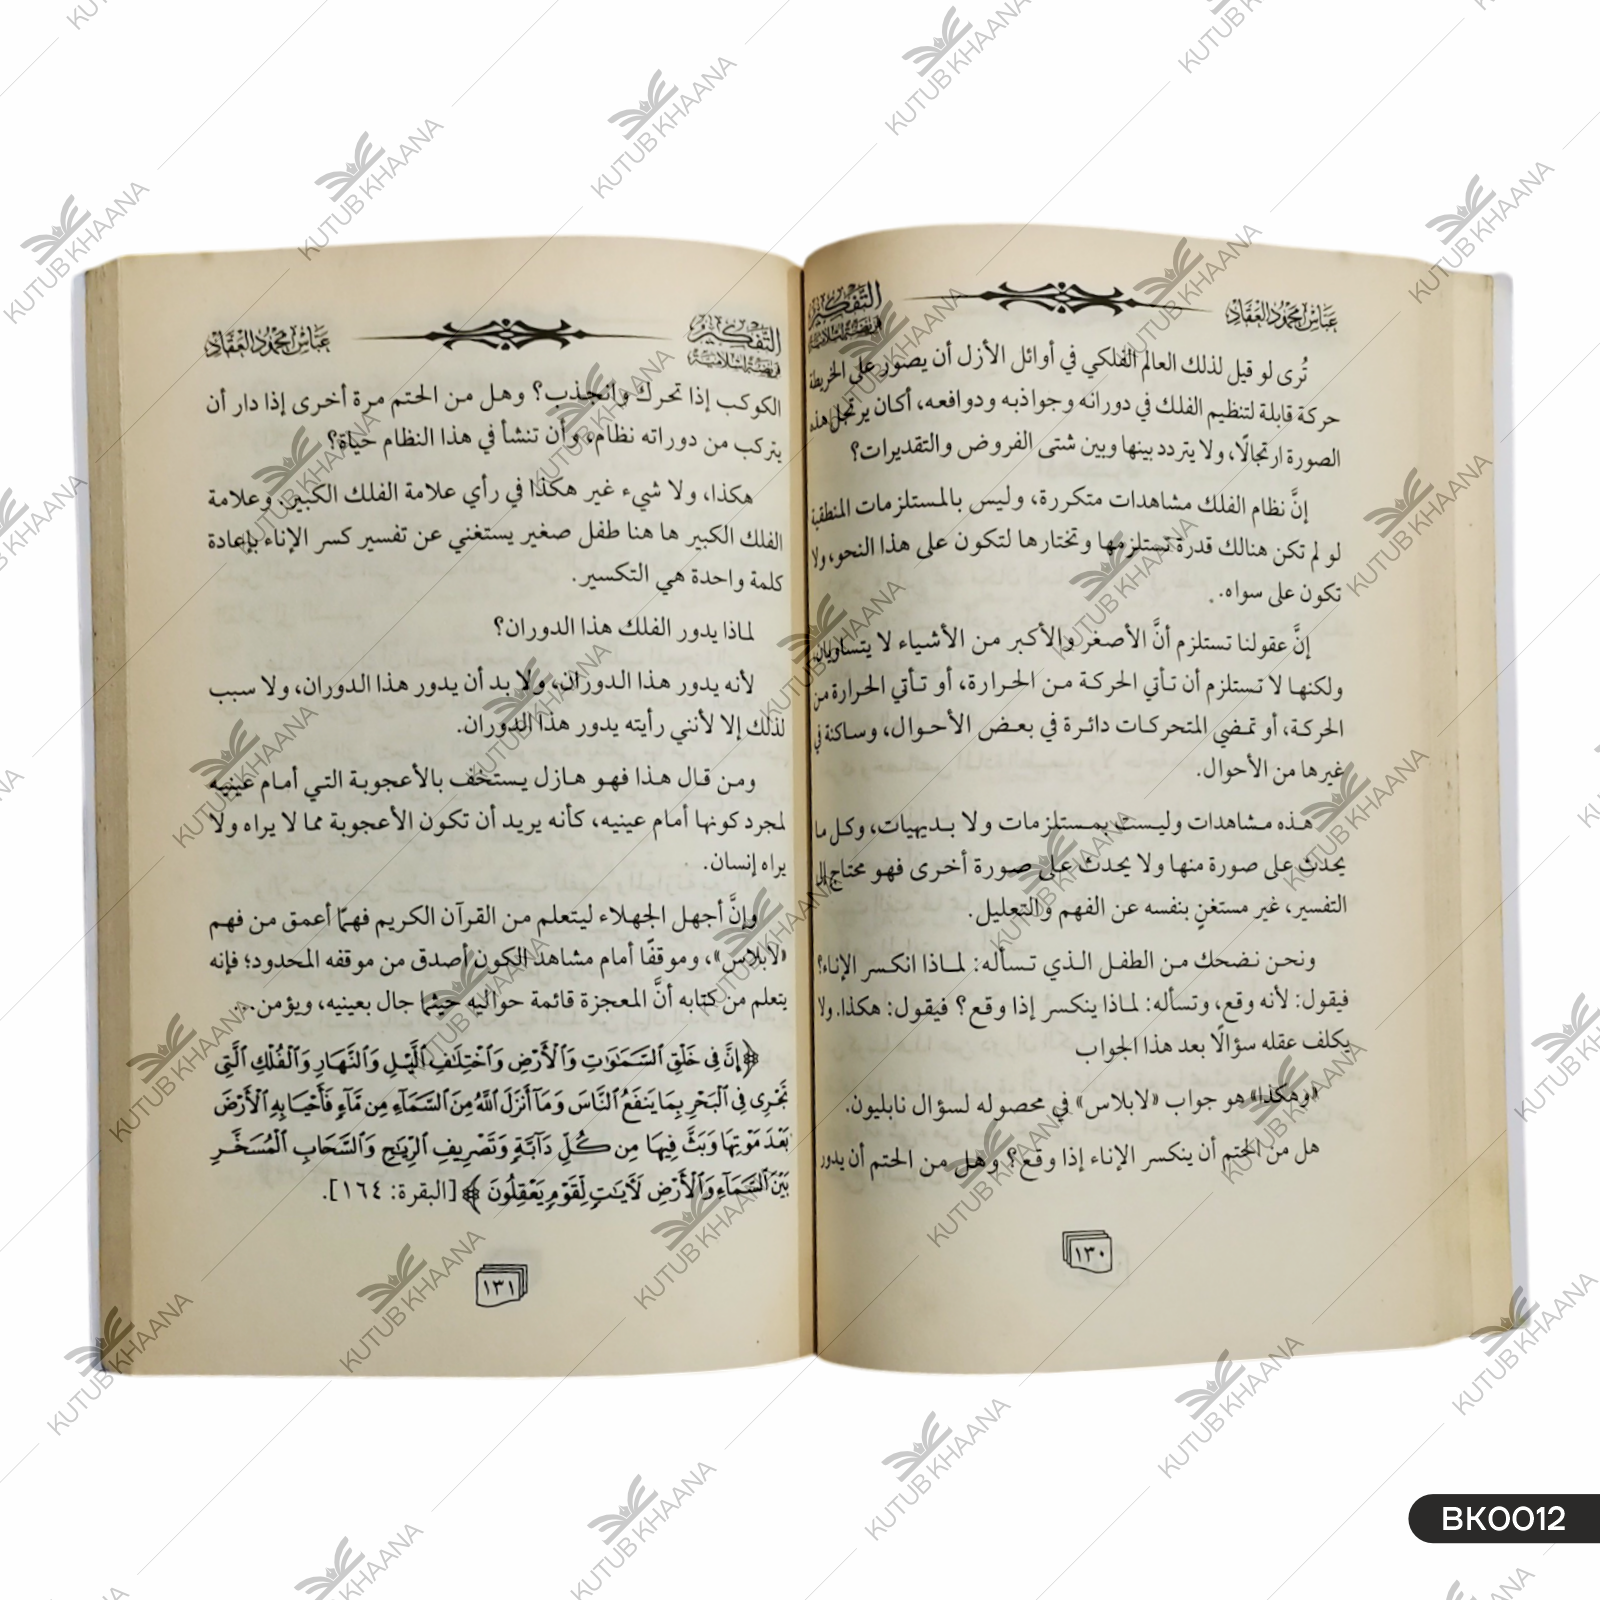 عباس محمود العقاد
التفكير
فريضة إسلامية
تُرى لو قيل لذلك العالم الفلكي في أوائل الأزل أن يصور على الخريطة
حركة قابلة لتنظيم الفلك في دورانه وجواذبه ودوافعه، أكان يرتجل هذه
الصورة ارتجالًا، ولا يتردد بينها وبين شتى الفروض والتقديرات؟
إنَّ نظام الفلك مشاهدات متكررة، وليس بالمستلزمات المنطقية
لو لم تكن هنالك قدرة تستلزمها وتختارها لتكون على هذا النحو، ولا
تكون على سواه.
إنَّ عقولنا تستلزم أنَّ الأصغر والأكبر من الأشياء لا يتساويان،
ولكنها لا تستلزم أن تأتي الحركة من الحرارة، أو تأتي الحرارة من
الحركة، أو تمضي المتحركات دائرة في بعض الأحوال، وساكنة في
غيرها من الأحوال.
هذه مشاهدات وليست بمستلزمات ولا بديهيات، وكل ما
يحدث على صورة منها ولا يحدث على صورة أخرى فهو محتاج إلى
التفسير، غير مستغنٍ بنفسه عن الفهم والتعليل.
ونحن نضحك من الطفل الذي تسأله: لماذا انكسر الإناء؟
فيقول: لأنه وقع، وتسأله: لماذا ينكسر إذا وقع؟ فيقول: هكذا. ولا
يكلف عقله سؤالًا بعد هذا الجواب
«وهكذا» هو جواب «لابلاس» في محصوله لسؤال نابليون.
هل من الحتم أن ينكسر الإناء إذا وقع؟ وهل من الحتم أن يدور
١٣٠
التفكير
فريضة إسلامية
عباس محمود العقاد
الكوكب إذا تحرك وانجذب؟ وهل من الحتم مرة أخرى إذا دار أن
يتركب من دوراته نظام، وأن تنشأ في هذا النظام حياة؟
هكذا، ولا شيء غير هكذا في رأي علامة الفلك الكبير، وعلامة
الفلك الكبير ها هنا طفل صغير يستغني عن تفسير كسر الإناء بإعادة
كلمة واحدة هي التكسير.
لماذا يدور الفلك هذا الدوران؟
لأنه يدور هذا الدوران، ولا بد أن يدور هذا الدوران، ولا سبب
لذلك إلا لأنني رأيته يدور هذا الدوران.
ومن قال هذا فهو هازل يستخف بالأعجوبة التي أمام عينيه
لمجرد كونها أمام عينيه، كأنه يريد أن تكون الأعجوبة مما لا يراه ولا
يراه إنسان.
وإنَّ أجهل الجهلاء ليتعلم من القرآن الكريم فهمًا أعمق من فهم
«لابلاس»، وموقفًا أمام مشاهد الكون أصدق من موقفه المحدود؛ فإنه
يتعلم من كتابه أنَّ المعجزة قائمة حواليه حيثما جال بعينيه، ويؤمن..
﴿إِنَّ فِي خَلْقِ ٱلسَّمَٰوَٰتِ وَٱلْأَرْضِ وَٱخْتِلَٰفِ ٱلَّيْلِ وَٱلنَّهَارِ وَٱلْفُلْكِ ٱلَّتِي
تَجْرِي فِي ٱلْبَحْرِ بِمَا يَنفَعُ ٱلنَّاسَ وَمَآ أَنزَلَ ٱللَّهُ مِنَ ٱلسَّمَآءِ مِن مَّآءٍ فَأَحْيَا بِهِ ٱلْأَرْضَ
بَعْدَ مَوْتِهَا وَبَثَّ فِيهَا مِن كُلِّ دَآبَّةٍ وَتَصْرِيفِ ٱلرِّيَٰحِ وَٱلسَّحَابِ ٱلْمُسَخَّرِ
بَيْنَ ٱلسَّمَآءِ وَٱلْأَرْضِ لَأٓيَٰتٍ لِّقَوْمٍ يَعْقِلُونَ﴾ [البقرة: ١٦٤].
١٣١
KUTUB KHAANA
BK0012